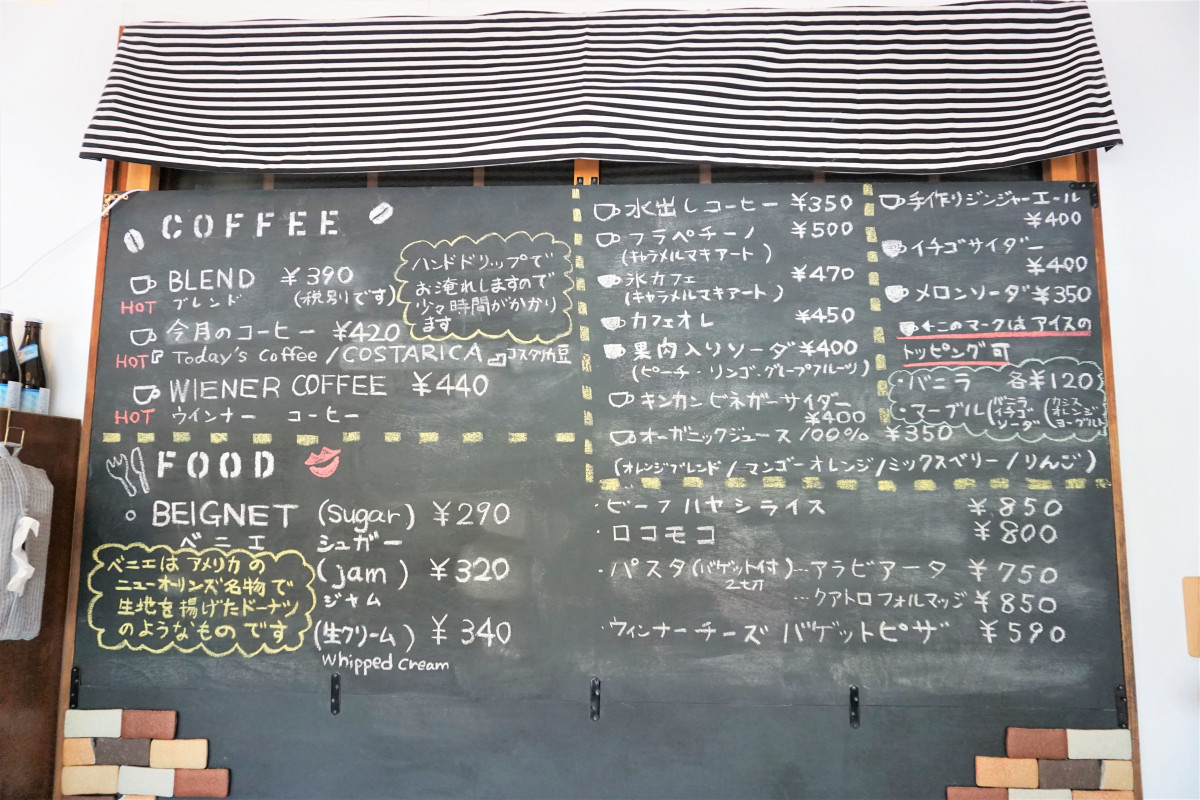 COFFEE
BLEND ¥390
HOT ブレンド (税別です)
ハンドドリップで
お淹れしますので
少々時間がかかり
ます
今月のコーヒー ¥420
HOT 『Today's Coffee /COSTARICA 』コスタリカ豆
WIENER COFFEE ¥440
HOT ウインナー コーヒー
水出しコーヒー ¥350
フラペチーノ ¥500
(キャラメルマキアート)
氷カフェ ¥470
(キャラメルマキアート)
カフェオレ ¥450
果肉入りソーダ ¥400
(ピーチ・リンゴ・グループフルーツ)
キンカンビネガーサイダー
¥400
オーガニックジュース 100% ¥350
(オレンジブレンド/マンゴーオレンジ/ミックスベリー/りんご)
手作りジンジャーエール
¥400
イチゴサイダー
¥400
メロンソーダ ¥350
←このマークはアイスの
トッピング可
・バニラ 各¥120
・マーブル(バニラ イチゴ ソーダ (カシス オレンジ ヨーグルト
FOOD
BEIGNET (Sugar) ¥290
ベニエ シュガー
(jam) ¥320
ジャム
(生クリーム) ¥340
Whipped Cream
ベニエはアメリカの
ニューオーリンズ名物で
生地を揚げたドーナツ
のようなものです
・ビーフハヤシライス ¥850
・ロコモコ ¥800
・パスタ(バゲット付)…アラビアータ ¥750
2切
…クアトロフォルマッジ ¥850
・ウィンナーチーズ バゲットピザ ¥590